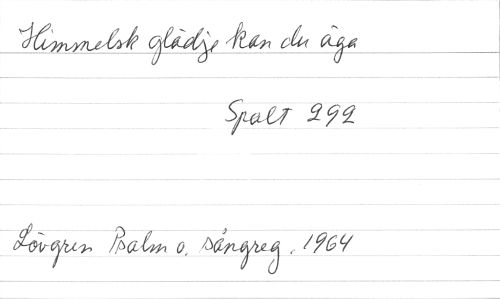 Himmelsk glädje kan du äga
Spalt 292
Lövgren Psalm o. sångreg. 1964